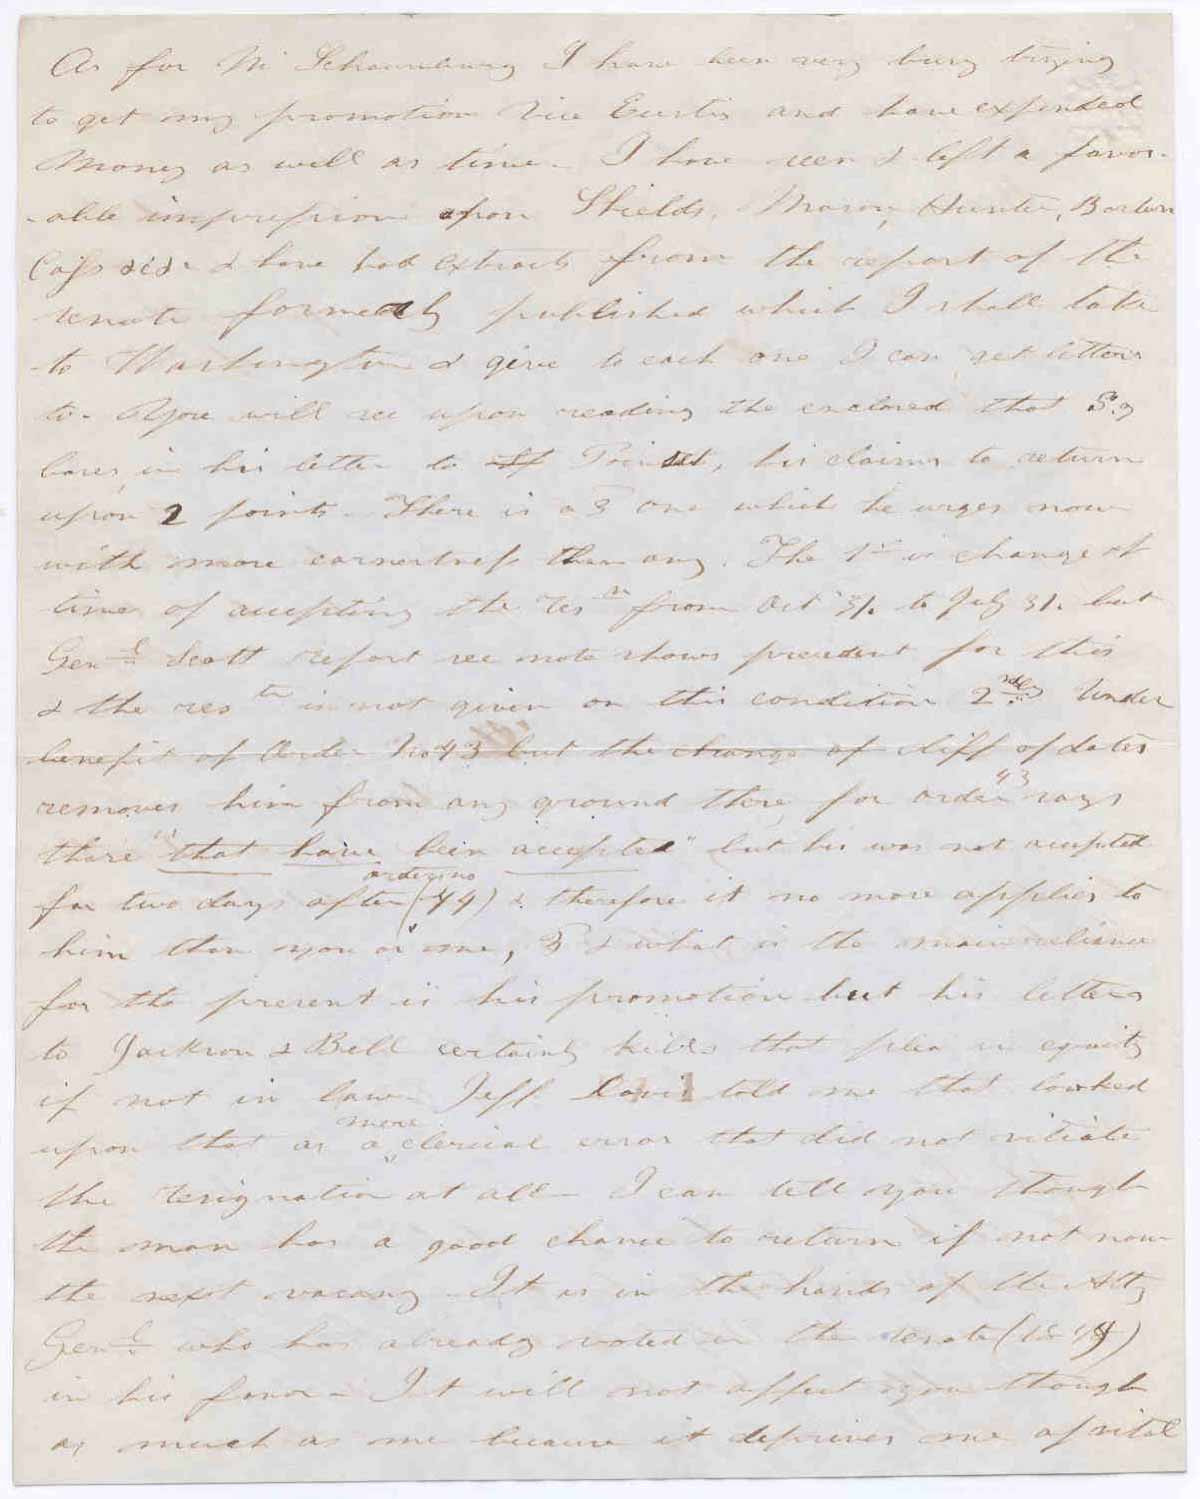 As for Mr Schaumburg I have been very busy trying
to get my promotion Vice Eustis and have expended
Money as well as time - I have seen & left a favor-
-able impression upon Shields, Mason, Hunter,
Cass & have had extracts from the report of the
senate formerly published which I shall take
to Washington & give to each one I can get letters
to - You will see upon reading the enclosed that
in his letter to Poinsett, his claims to return
upon 2 points - There is a 3 One which he urges now
with more earnestness than any. The 1st is change of
time of accepting the resn from Oct 31. to July 31. but
Genl Scott report see note shows precedent for this
& the res is not given on this condition Under
benefit of Order No 43 but the change of diff of dates
removes him from any ground there, for order 43 says
those "that have been accepted" but his was not accepted
for two days after (orders no 44) & therefore it no more applies to
him than you or me, 3 & what is the main reliance
for the present is his promotion but his letters
to Jackson & Bell certainly kills that plea in equity
if not in law - Jeff Davis told me that looked
upon that as a mere clerical error that did not vitiate
the resignation at all - I can tell you though
the man has a good chance to return if not now
the next vacancy - It is in the hands of the Atty
Genl who has already voted in the senate
in his favor - It will not affect you though
as much as me because it deprives me of vital